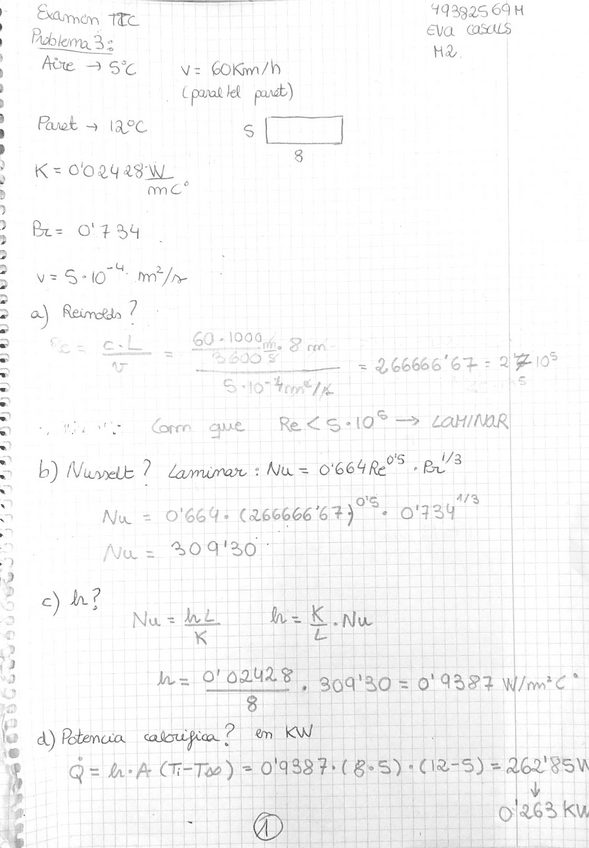 Examen TTC
49382569M
EVA CASALS
M2
Problema 3:
Aire → 5°C v = 60Km/h
(paral·lel paret)
Paret → 12°C 5
8
K = 0'02428 W/mC°
Pr = 0'734
v = 5·10⁻⁴ m²/s
a) Reinolds?
= c·L/v = (60·1000m/3600s · 8m)/(5·10⁻⁴m²/s) = 266666'67 = 2'7 10⁵
5
Com que Re < 5·10⁵ → LAMINAR
b) Nusselt? Laminar: Nu = 0'664Re^0'5 · Pr^1/3
Nu = 0'664·(266666'67)^0'5 · 0'734^1/3
Nu = 309'30
c) h?
Nu = hL/K h = K/L · Nu
h = 0'02428/8 · 309'30 = 0'9387 W/m²C°
d) Potencia calorifica? en KW
Q̇ = h·A (Ti-T∞) = 0'9387·(8·5)·(12-5) = 262'85W
↓
0'263 KW
1